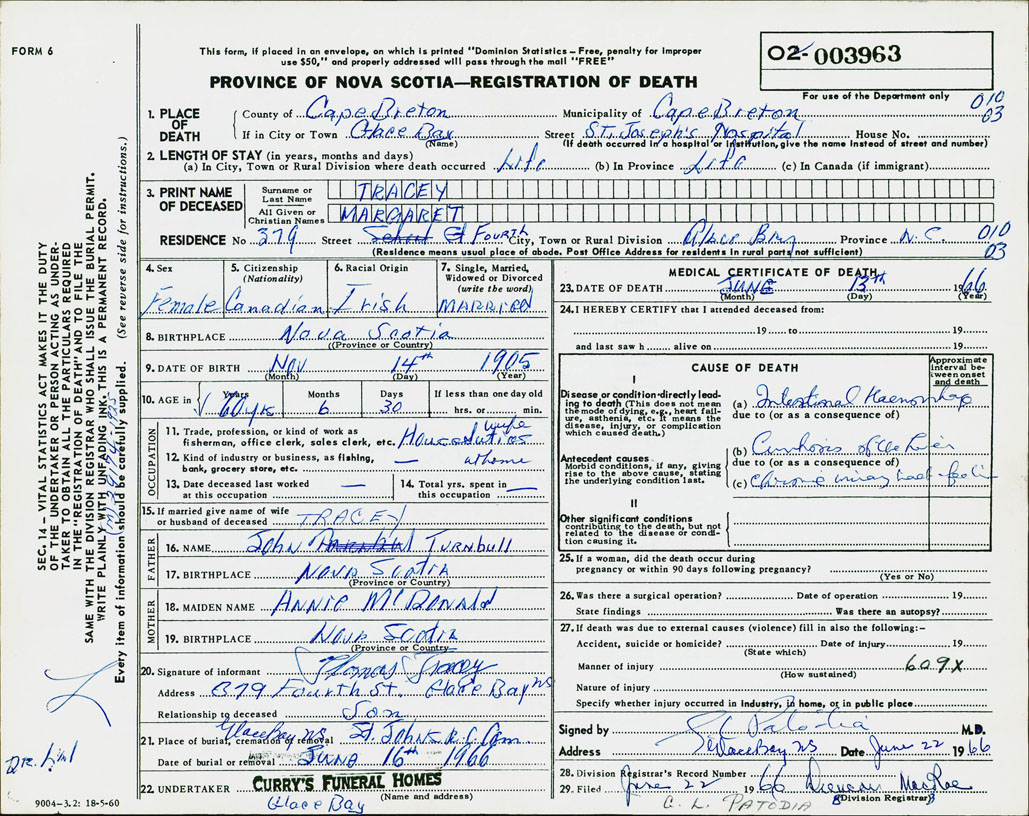 FORM 6
This form, if placed in an envelope, on which is printed "Dominion Statistics – Free, penalty for improper
use $50," and properly addressed will pass through the mail "FREE"
PROVINCE OF NOVA SCOTIA—REGISTRATION OF DEATH
02-003963
For use of the Department only
010
03
1. PLACE OF DEATH
County of Cape Breton Municipality of Cape Breton
If in City or Town Glace Bay Street St. Joseph's Hospital House No.
(Name) (If death occurred in a hospital or institution, give the name instead of street and number)
2. LENGTH OF STAY (in years, months and days)
(a) In City, Town or Rural Division where death occurred Life (b) In Province Life (c) In Canada (if immigrant)
3. PRINT NAME OF DECEASED
Surname or Last Name TRACEY
All Given or Christian Names MARGARET
RESIDENCE No 379 Street Fourth City, Town or Rural Division Glace Bay Province N.C. 010
03
(Residence means usual place of abode. Post Office Address for residents in rural parts not sufficient)
4. Sex Female
5. Citizenship (Nationality) Canadian
6. Racial Origin Irish
7. Single, Married, Widowed or Divorced (write the word) MARRIED
8. BIRTHPLACE Nova Scotia
(Province or Country)
9. DATE OF BIRTH Nov 14th 1905
(Month) (Day) (Year)
10. AGE in Years Months Days If less than one day old
60 yrs 6 30 hrs. or min.
OCCUPATION
11. Trade, profession, or kind of work as
fisherman, office clerk, sales clerk, etc. House wife duties
12. Kind of industry or business, as fishing,
bank, grocery store, etc. — at home
13. Date deceased last worked
at this occupation —
14. Total yrs. spent in
this occupation —
15. If married give name of wife
or husband of deceased TRACEY
FATHER
16. NAME John Turnbull
17. BIRTHPLACE Nova Scotia
(Province or Country)
MOTHER
18. MAIDEN NAME Annie McDonald
19. BIRTHPLACE Nova Scotia
(Province or Country)
20. Signature of informant Thomas Tracey
Address 379 Fourth St. Glace Bay NS
Relationship to deceased Son
21. Place of burial, cremation or removal Glace Bay NS St. John's R.C. Cem.
Date of burial or removal June 16th 1966
22. UNDERTAKER CURRY'S FUNERAL HOMES
(Name and address)
Glace Bay
MEDICAL CERTIFICATE OF DEATH
23. DATE OF DEATH JUNE 13th 1966
(Month) (Day) (Year)
24. I HEREBY CERTIFY that I attended deceased from:
19 to 19
and last saw h alive on 19
CAUSE OF DEATH
Approximate interval between onset and death
I
Disease or condition directly leading to death (This does not mean the mode of dying, e.g., heart failure, asthenia, etc. It means the disease, injury, or complication which caused death.)
(a) Intestinal Haemorrhage
due to (or as a consequence of)
Antecedent causes
Morbid conditions, if any, giving rise to the above cause, stating the underlying condition last.
(b) Cirrhosis of the Liver
due to (or as a consequence of)
(c) Chronic
II
Other significant conditions
contributing to the death, but not related to the disease or condition causing it.
25. If a woman, did the death occur during
pregnancy or within 90 days following pregnancy?
(Yes or No)
26. Was there a surgical operation? Date of operation 19
State findings Was there an autopsy?
27. If death was due to external causes (violence) fill in also the following:–
Accident, suicide or homicide? Date of injury 19
(State which)
Manner of injury 609X
(How sustained)
Nature of injury
Specify whether injury occurred in industry, in home, or in public place
Signed by C L Patodia M.D.
Address Glace Bay NS Date June 22 1966
28. Division Registrar's Record Number
29. Filed June 22 1966 Duncan MacRae
(Division Registrar)
C. L. PATODIA
SEC. 14 – VITAL STATISTICS ACT MAKES IT THE DUTY
OF THE UNDERTAKER OR PERSON ACTING AS UNDER-
TAKER TO OBTAIN ALL THE PARTICULARS REQUIRED
IN THE "REGISTRATION OF DEATH" AND TO FILE THE
SAME WITH THE DIVISION REGISTRAR WHO SHALL ISSUE THE BURIAL PERMIT.
WRITE PLAINLY WITH UNFADING INK. THIS IS A PERMANENT RECORD.
Every item of information should be carefully supplied. (See reverse side for instructions.)
9004–3.2: 18-5-60